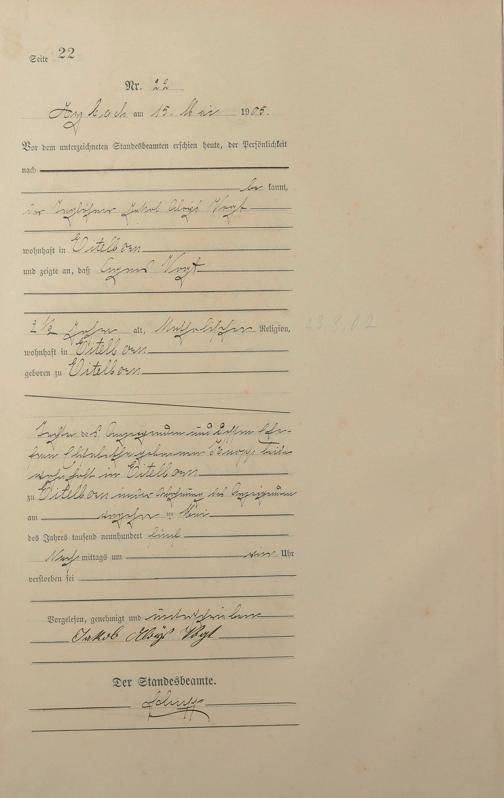 Seite 22
Nr. 22
am 15. Mai 1905.
Vor dem unterzeichneten Standesbeamten erschien heute, der Persönlichkeit
nach
be kannt,
der Taglöhner Jakob Aloys Vogt
wohnhaft in Eitelborn
und zeigte an, daß Agnes Vogt
2 1/2 Jahre alt, Katholischer Religion,
23.9.02
wohnhaft in Eitelborn
geboren zu Eitelborn
Tochter des Anzeigenden und dessen Ehe-
frau geborenen Knopp beide
wohnhaft in Eitelborn
zu Eitelborn in der Wohnung des Anzeigenden
am Mai
des Jahres tausend neunhundert fünf
Nach mittags um vier Uhr
verstorben sei
Vorgelesen, genehmigt und unterschrieben
Jakob Aloys Vogt
Der Standesbeamte.